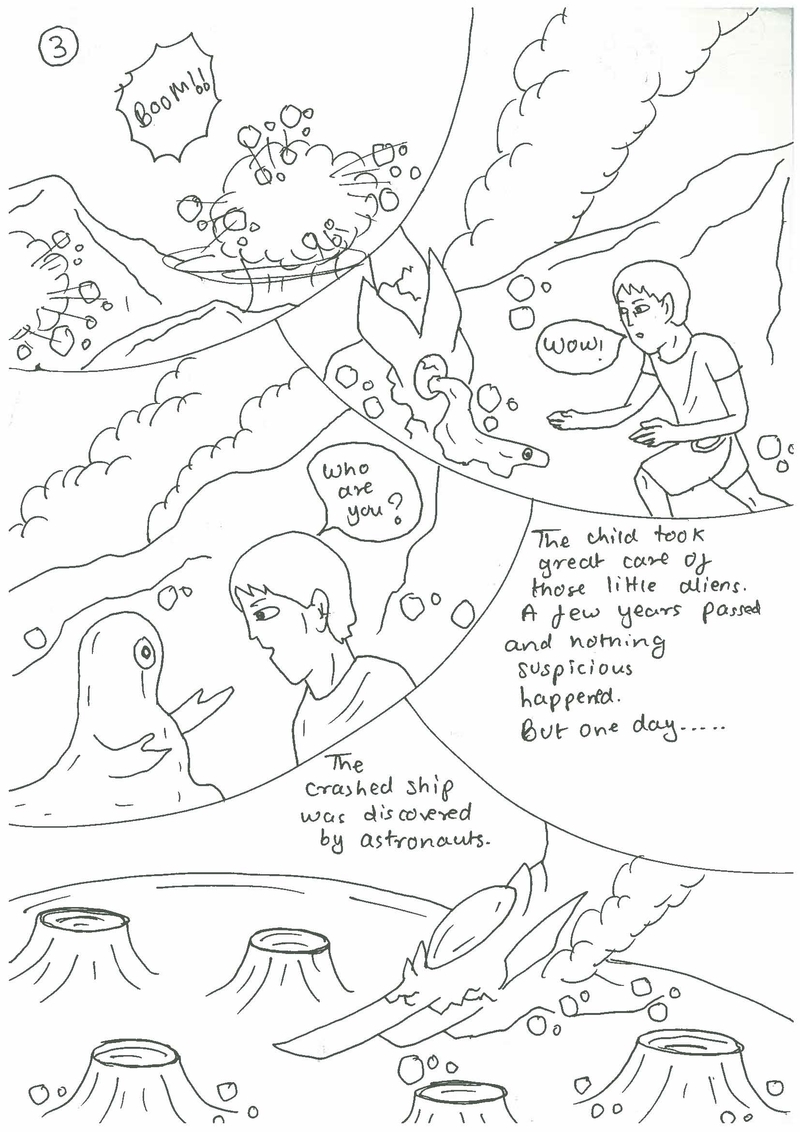 3
BOOM!!
WOW!
Who
are
you?
The child took
great care of
those little aliens.
A few years passed
and nothing
suspicious
happened.
But one day.....
The
crashed ship
was discovered
by astronauts.